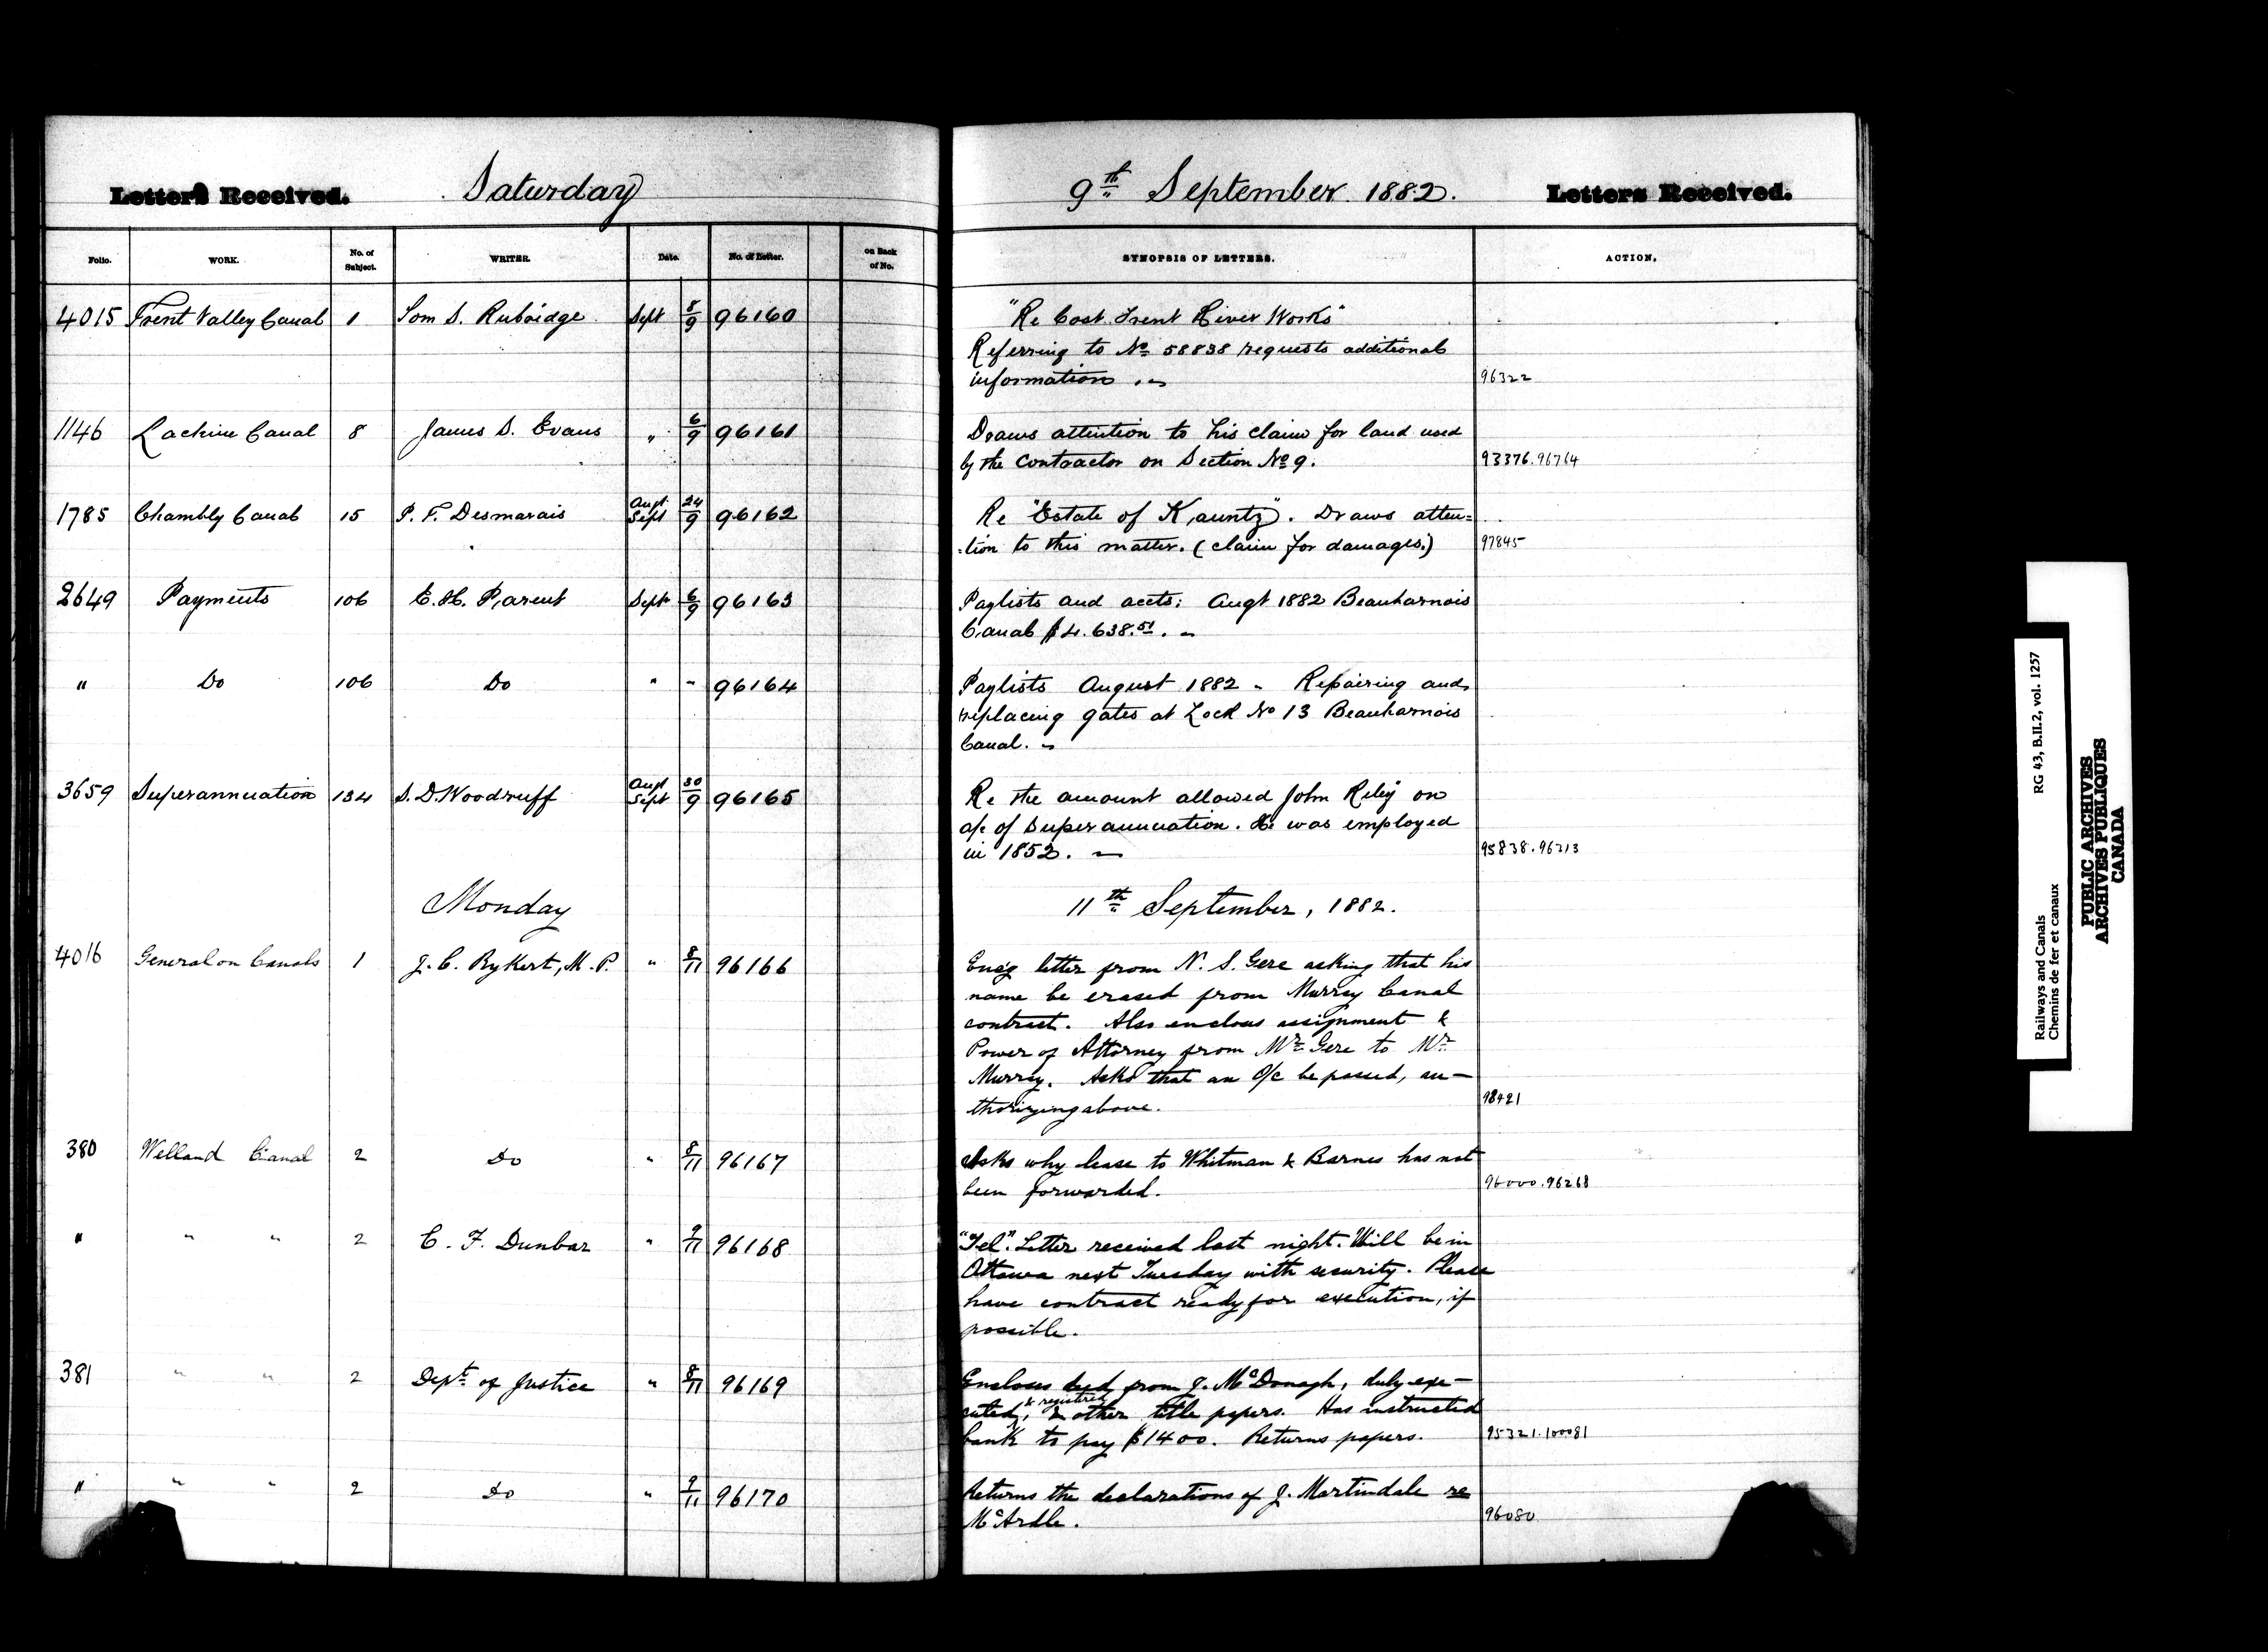 Letters Received. Saturday 9th September 1882. Letters Received.
Folio. WORK. No. of Subject. WRITER. Date. No. of Letter. on Back of No. SYNOPSIS OF LETTERS. ACTION.
4015 Trent Valley Canal 1 Tom S. Rubidge Sept 8/9 96160 "Re Cost Trent River Works"
Referring to No 58838 requests additional
information. 96322
1146 Lachine Canal 8 James S. Evans " 6/9 96161 Draws attention to his claim for land used
by the contractor on Section No 9. 93376.96764
1785 Chambly Canal 15 P. F. Desmarais Augt Sept 24/9 96162 Re "Estate of Kauntz". Draws atten=
tion to this matter. (claim for damages.) 97845
2649 Payments 106 E. H. Parent Sept 6/9 96163 Paylists and accts: Augt 1882 Beauharnois
Canal $4.638.51.
" Do 106 Do " " 96164 Paylists August 1882 - Repairing and
replacing gates at Lock No 13 Beauharnois
Canal.
3659 Superannuation 134 S. D. Woodruff Augt Sept 30/9 96165 Re the amount allowed John Riley on
a/c of Superannuation. He was employed
in 1852. 95838.96213
Monday 11th September, 1882.
4016 General on Canals 1 J. C. Rykert, M.P. " 8/11 96166 Enc'g letter from N. S. Gere asking that his
name be erased from Murray Canal
contract. Also encloses assignment &
Power of Attorney from Mr. Gere to Mr.
Murray. Asks that an O/C be passed, au-
thorizing above. 98421
380 Welland Canal 2 Do " 8/11 96167 Asks why lease to Whitman & Barnes has not
been forwarded. 96000.96268
" " " 2 C. F. Dunbar " 9/11 96168 "Tel". Letter received last night. Will be in
Ottawa next Tuesday with security. Please
have contract ready for execution, if
possible.
381 " " 2 Dept. of Justice " 8/11 96169 Encloses deed from J. McDonagh, duly exe-
cuted, & registered, & other title papers. Has instructed
bank to pay $1400. Returns papers. 95321.100081
" " " 2 Do " 9/11 96170 Returns the declarations of J. Martindale re
McArdle. 96080
Railways and Canals RG 43, B.II.2, vol. 1257
Chemins de fer et canaux
PUBLIC ARCHIVES
ARCHIVES PUBLIQUES
CANADA